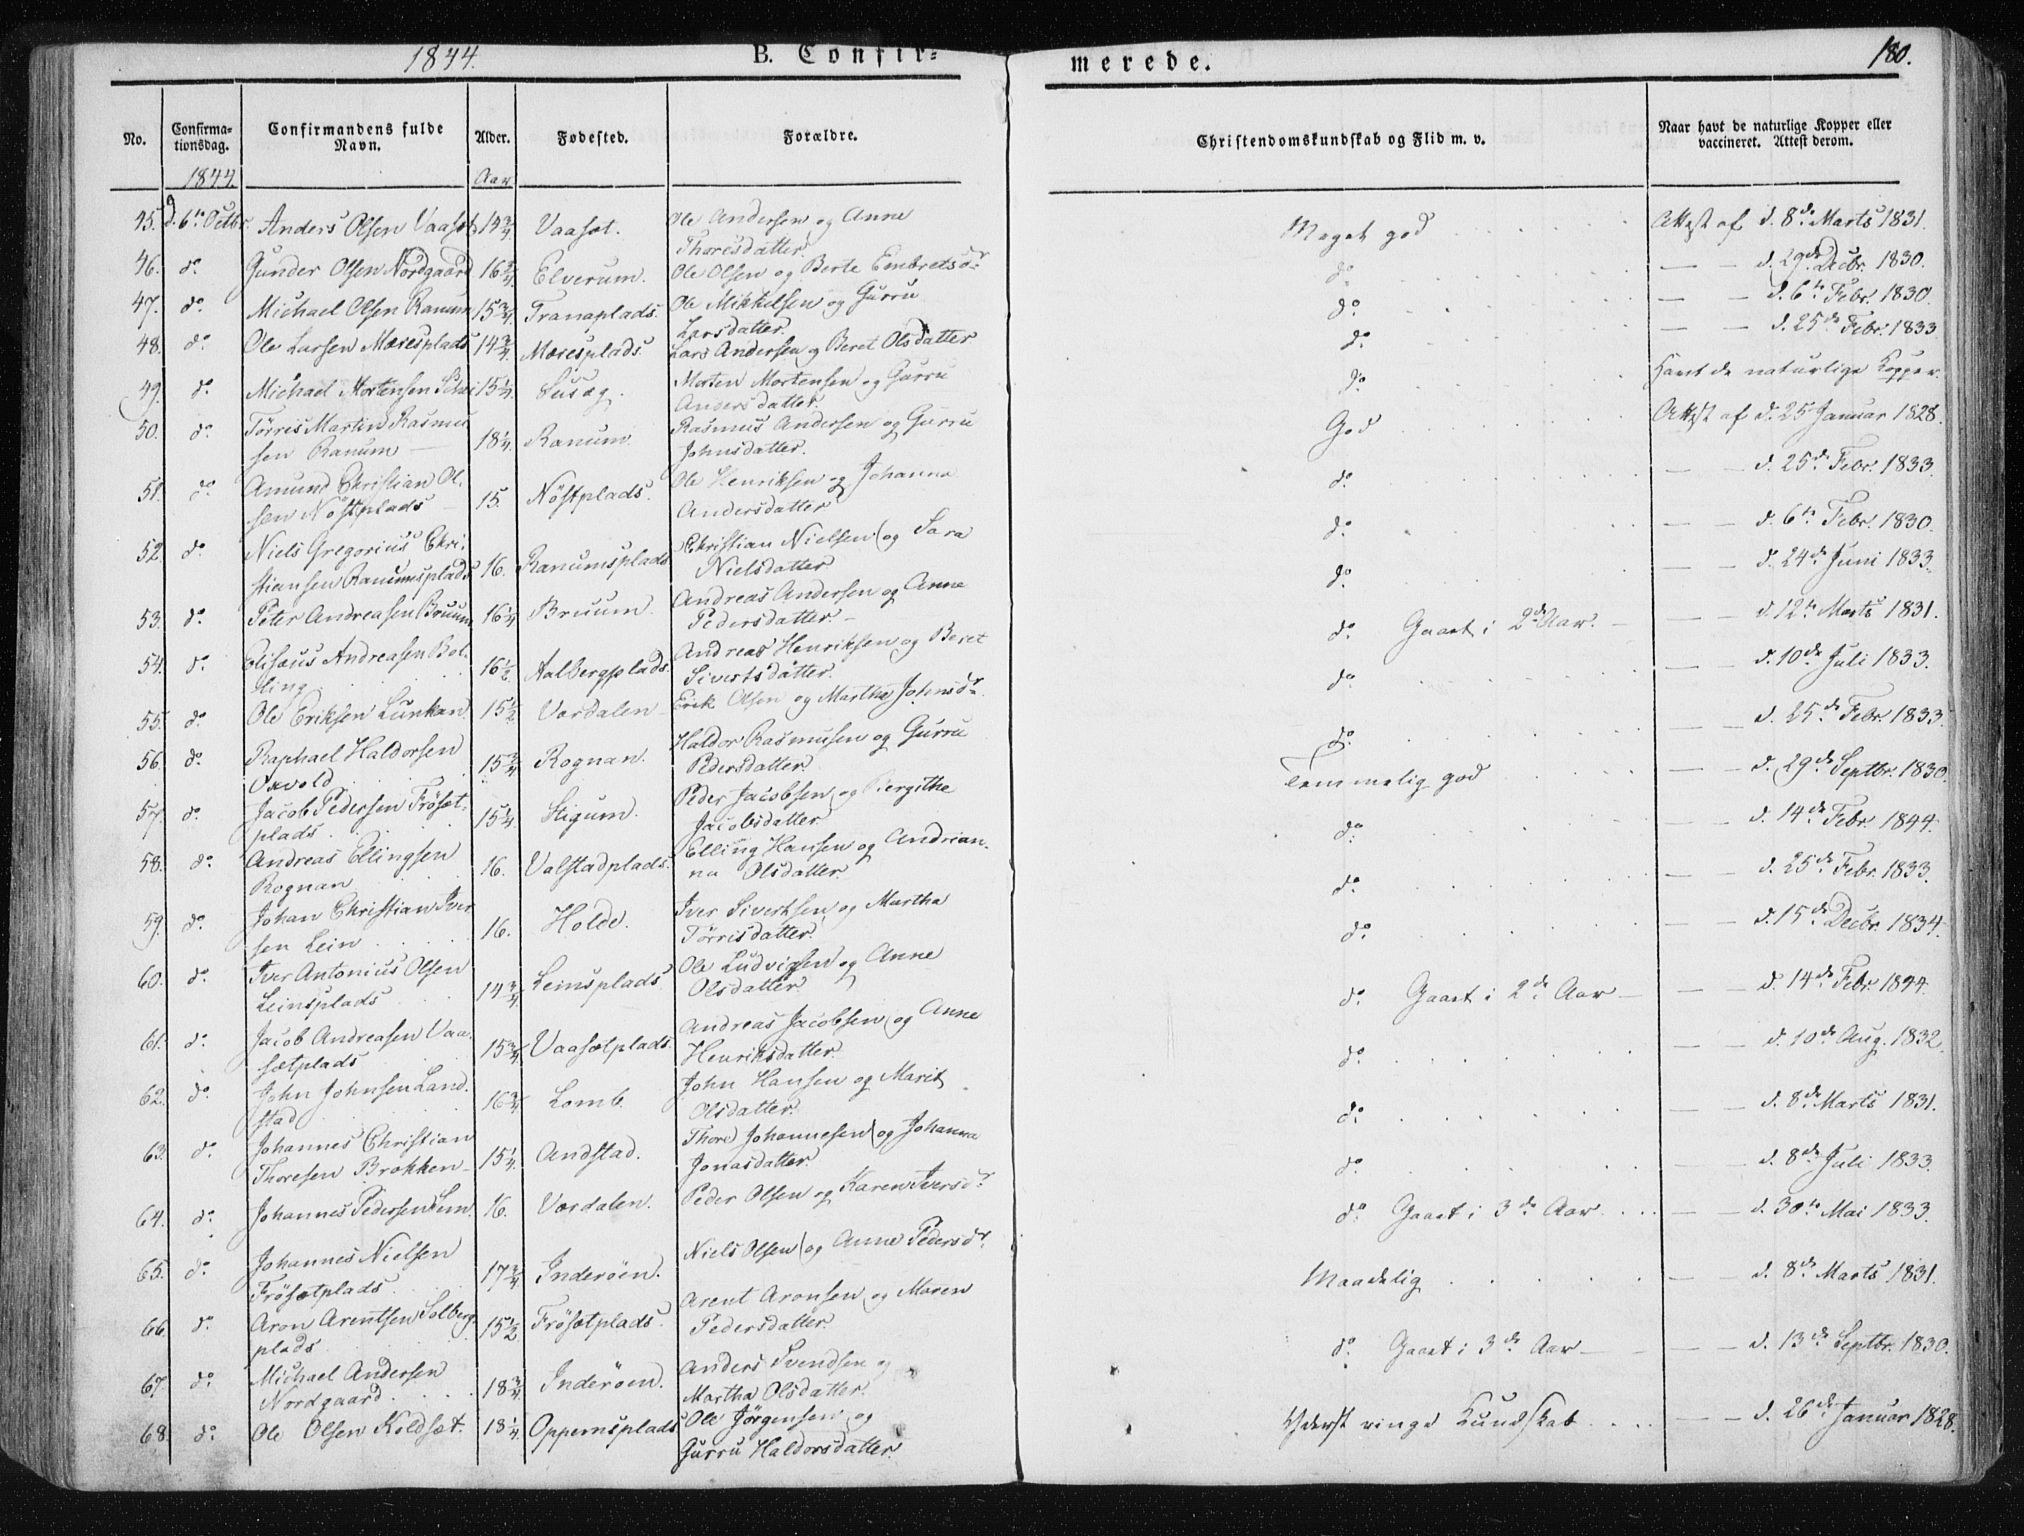 1844.
B. Confir=
merede.
180.
No.
Confirma-
tionsdag.
Confirmandens fulde
Navn.
Alder.
Fødested.
Forældre.
Christendomskundskab og Flid m. v.
Naar havt de naturlige Kopper eller
vaccineret. Attest derom.
1844.
Aar
45. d. 6te Octbr. Anders Olsen Vaaset 14¾ Vaaset. Ole Andersen og Anne
Thoresdatter. Meget god Attest af d. 8de Marts 1831.
46. do Gunder Olsen Nordgaard 16¾ Elverum. Ole Olsen og Berte Embretsdr do — — d. 29de Decbr. 1830.
47. do Michael Olsen Ranum 15¾ Tranaplads. Ole Mikkelsen og Gurru
Larsdatter. do — — d. 6te Febr. 1830.
48. do Ole Larsen Mæresplads 14¾ Mæresplads Lars Andersen og Beret Olsdatter do — — d. 25de Febr. 1833
49. do Michael Mortensen 15¼ Susæg. Morten Mortensen og Gurru
Andersdatter. do Havt de naturlige Kopper.
50. do Tørris Martin Rasmus
sen Ranum — 18¼ Ranum Rasmus Andersen og Gurru
Johnsdatter. God Attest af d. 25 Januar 1828.
51. do Amund Christian Ol-
sen Nöstplads — 15. Nöstplads. Ole Henriksen og Johanna
Andersdatter do — — d. 25de Febr. 1833.
52. do Niels Gregorius Chri-
stiansen Ranumsplads 16. Ranumsplads Christian Nielsen og Sara
Nielsdatter do — — d. 6te Febr. 1830.
53. do Peter Andreasen Bruum 16¼ Bruum. Andreas Andersen og Anne
Pedersdatter — do — — d. 24de Juni 1833.
54. do Elisæus Andreasen Bol-
ling 16½ Aalbergplads. Andreas Henriksen og Beret
Sivertsdatter. do Gaaet i 2det Aar. — — d. 12te Marts 1831.
55. do Ole Eriksen Lunkan 15½ Vordalen Erik Olsen og Martha Johnsdr do — — d. 10de Juli 1833.
56. do Raphael Haldorsen
Oxvold 15¾ Rognan. Haldor Rasmusen og Gurru
Pedersdatter. do — — d. 25de Febr. 1833.
57. do Jacob Pedersen Fröset-
plads 15¼ Stigum. Peder Jacobsen og Bergithe
Jacobsdatter Temmelig god — — d. 29de Septbr. 1830.
58. do Andreas Ellingsen
Rognan 16. Valstadplads. Elling Hansen og Andrian-
na Olsdatter. do — — d. 14de Febr. 1844.
59. do Johan Christian Iver
sen Lein 16. Holde. Iver Sivertsen og Martha
Törrisdatter. do — — d. 25de Febr. 1833.
60. do Iver Antonius Olsen
Leinsplads 14¾ Leinsplads. Ole Ludvigsen og Anne
Olsdatter. do — — d. 15de Decbr. 1834.
61. do Jacob Andreasen Vaa-
setplads 15¾ Vaasetplads. Andreas Jacobsen og Anne
Henriksdatter. do Gaaet i 2det Aar — — — d. 14de Febr. 1844.
62. do John Johnsen Land-
stad 16¾ Lomb. John Hansen og Marit
Olsdatter. do — — d. 10de Aug. 1832.
63. do Johannes Christian
Thoresen Brokken — 15¼ Andstad. Thore Johannesen og Johanna
Jonasdatter. do — — d. 8de Marts 1831.
64. do Johannes Pedersen Lein. 16. Vordalen. Peder Olsen og Karen Iversdr do — — d. 8de Juli 1833.
65. do Johannes Nielsen
Frösetplads 17¾ Inderøen. Niels Olsen og Anne Pedersdr. do Gaaet i 3de Aar — — d. 30te Mai 1833.
66. do Aron Arentsen Solberg-
plads 15½ Frösetplads. Arent Aronsen og Maren
Pedersdatter. Maadelig — — d. 8de Marts 1831.
67. do Michael Andersen
Nordgaard 18¾ Inderøen. Anders Svendsen og
Martha Olsdatter. do Gaaet i 3de Aar — — d. 13de Septbr. 1830.
68. do Ole Olsen Koldset. 18¼ Oppemsplads Ole Jørgensen og
Gurru Haldorsdatter. Yderst ringe Kundskab — — d. 26de Januar 1828.